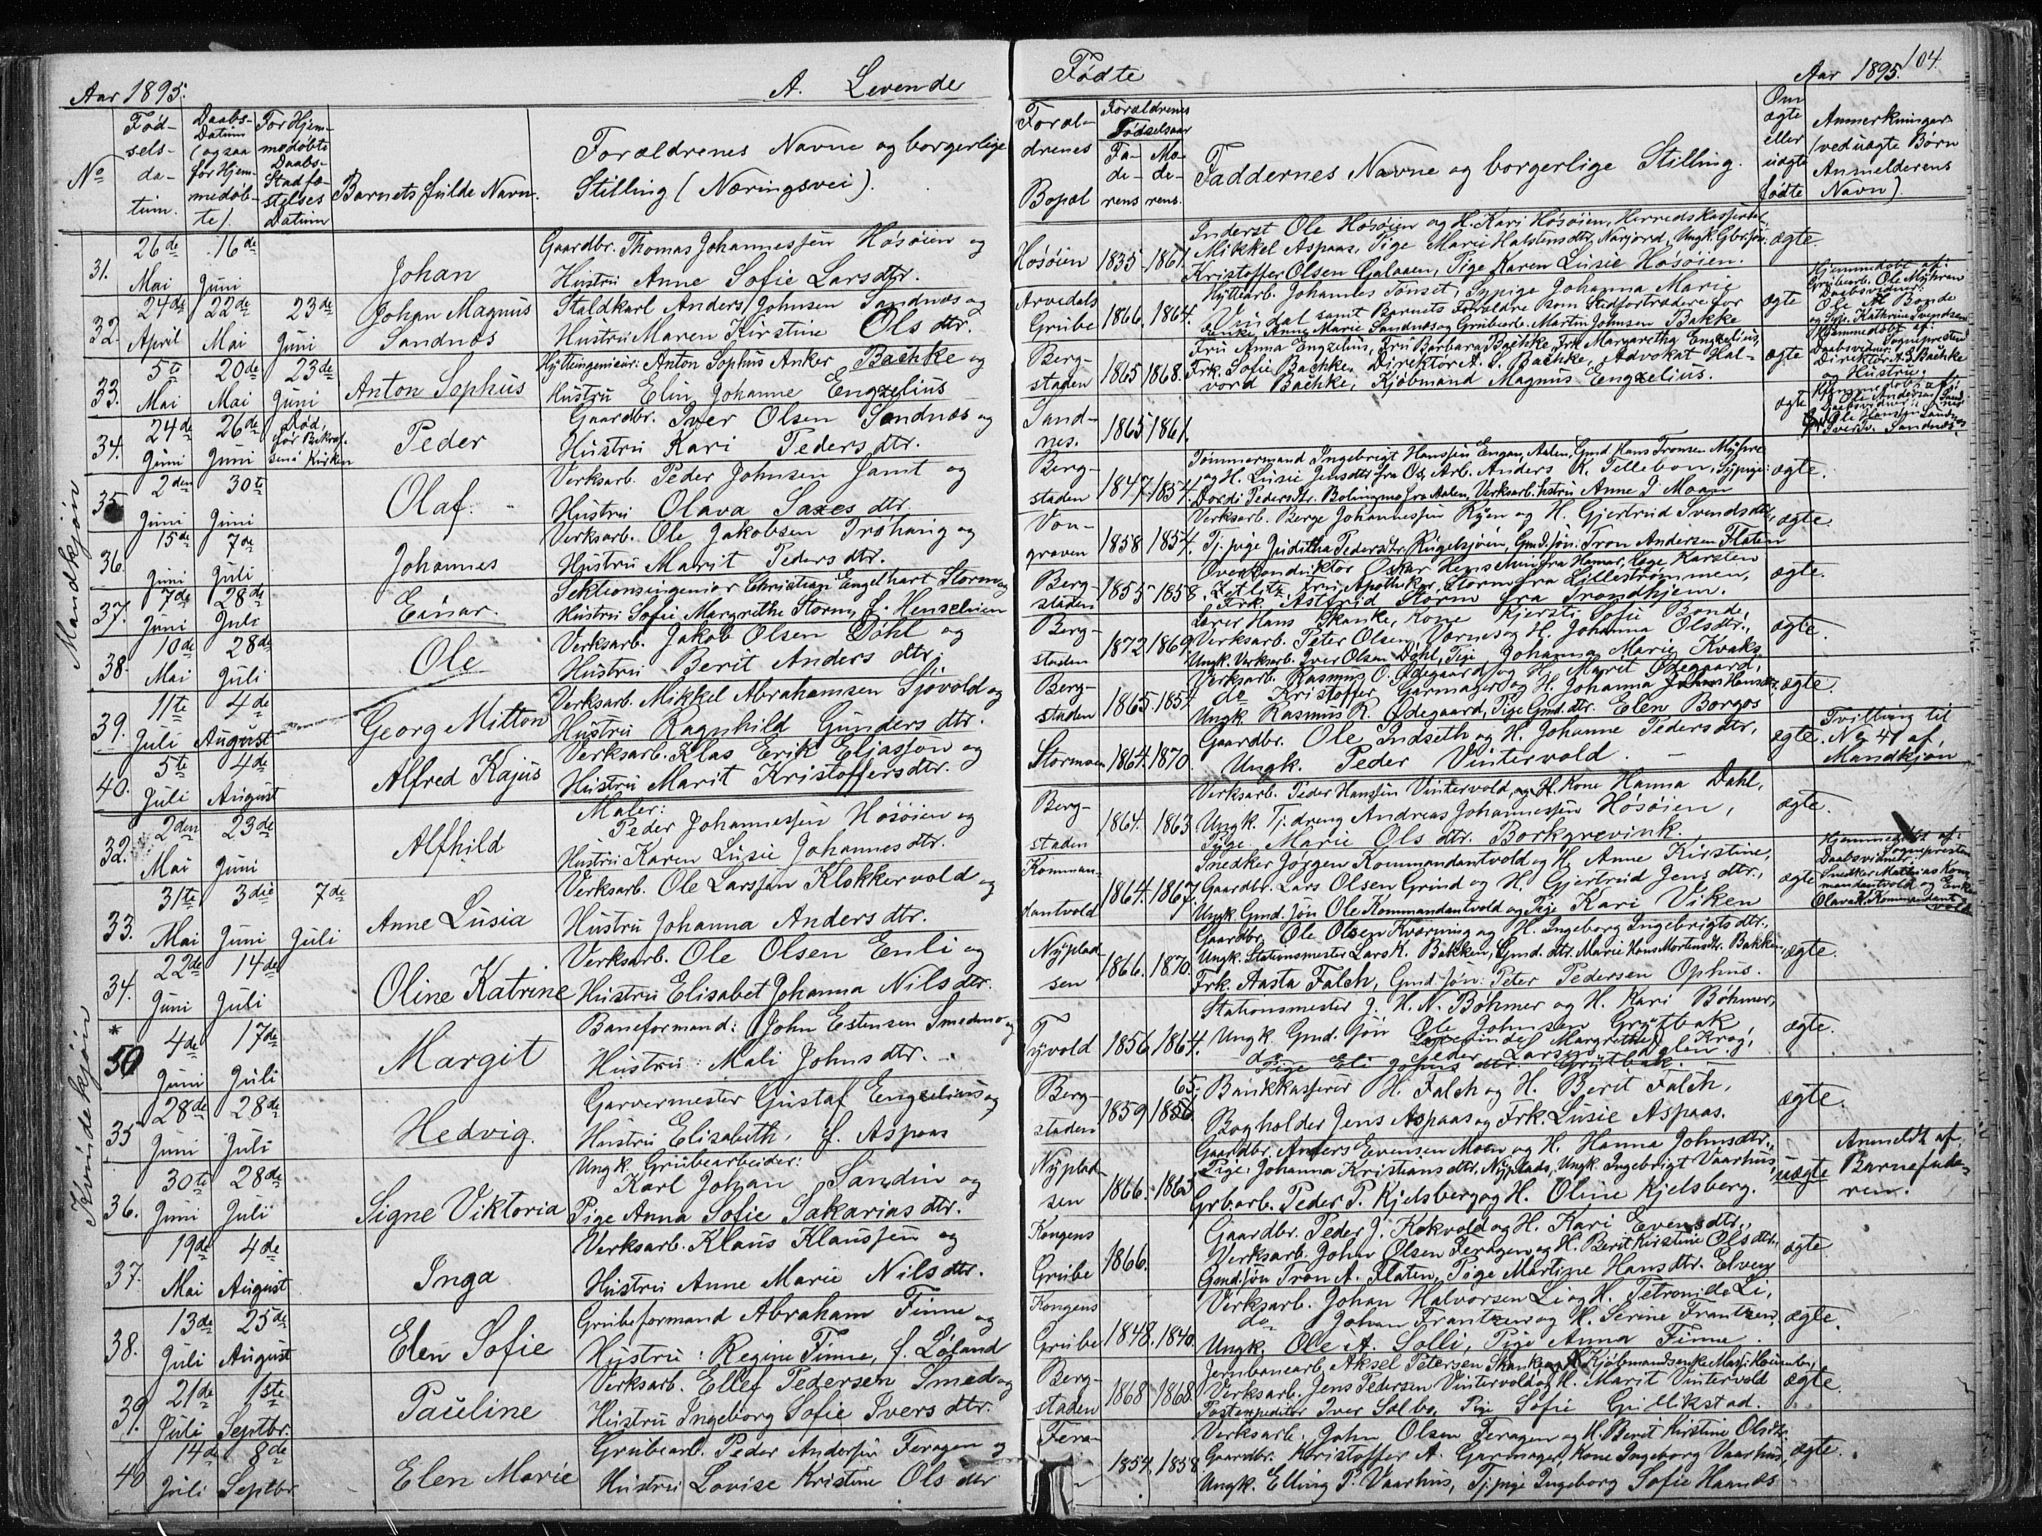 104.
Aar 1895.
A. Levende
Fødte
Aar 1895.
No
Fød-
sels-
da-
tum.
Daabs-
Datum
(ogsaa
for Hjem-
medøb-
te).
For Hjem-
medøbte
Daabs-
Stadfæ-
stelses
Datum
Barnets fulde Navn.
Forældrenes Navne og borgerlige
Stilling (Næringsvei).
Foræl-
drenes
Bopæl
Forældrenes
Fødselsaar
Fa-
de-
rens
Mo-
de-
rens.
Faddernes Navne og borgerlige Stilling.
Om
ægte
eller
uægte
fødte
Anmerkninger
(ved uægte Børn
Anmelderens
Navn).
Mandkjøn
31. 26de Mai 16de Juni
Johan
Gaardbr. Thomas Johannessen Høsøien og
Hustru Anne Sofie Larsdtr.
Høsøien 1835. 1861.
Inderst Ole Høsøien og H. Kari Høsøien, Herredskasserer
Mikkel Aspaas, Pige Marie Halstensdtr. Narjord, Ungk. Gbr.søn
Kristoffer Olsen Galaaen, Pige Karen Lusie Høsøien.
ægte
32. 24de April 22de Mai 23de Juni
Johan Magnus
Sandnæs
Staldkarl Anders Johnsen Sandnæs og
Hustru Maren Kirstine Olsdtr.
Arvedals
Grube 1866. 1864.
Hyttearb. Johannes Tønset, Sypige Johanna Marie
Vindal samt Barnets Forældre som Stedfortrædere for
Enke Anne Marie Sandnæs og Grubearb. Martin Johnsen Bakke
ægte
Hjemmedøbt af:
Grubearb. Ole Myhren
Daabsvidner:
Ole M. Bonde
og Sype. Kathrine Svendsen
33. 5te Mai 20de Mai 23de Juni
Anton Sophus
Hytteingeniør: Anton Sophus Anker Bachke og
Hustru Elen Johanne Engzelius
Berg-
staden 1865 1868.
Fru Anna Engzelius, Fru Barbara Bachke, Frk. Margaretha Engzelius,
Frk. Sofie Bachke, Direktør A. S. Bachke, Advokat Hal-
vord Bachke, Kjøbmand Magnus Engzelius.
ægte
Hjemmedøbt af:
Sognepresten
Daabsvidner:
Direktør A. S. Bachke
og Hustru.
34. 24de Juni 26de Juni Død
før Bekræf.
i Kirken
Peder
Gaardbr. Iver Olsen Sandnæs og
Hustru Kari Pedersdtr.
Sand-
nes. 1865 1861.
ægte
Hjemmedøbt af:
Ole Andersen Sand-
Daabsvidner:
Ole Hansen Sand-
Iver Iv. Sandnæs
35 2den Juni 30te Juni
Olaf.
Verksarb. Peder Johnsen Jamt og
Hustru Olava Saxesdtr.
Berg-
staden 1847. 1857.
Tømmermand Ingebrigt Hanssen Engan, Aalen, Gmd. Hans Tronsen Myhre
og H. Lusie Jensdtr. fra Os, Arb. Anders K. Tellebon, Sypige
Dordi Pedersdtr. Bolingmo fra Aalen, Verksarb. hstru Anne J. Moan
ægte.
36. 15de Juni 7de Juli
Johannes
Verksarb. Ole Jakobsen Trøhaug og
Hustru Marit Pedersdtr.
Von-
graven 1858. 1854.
Verksarb. Berge Johannessen Ryen og H. Gjertrud Svendsdtr.
Tj. pige Juditha Pedersdtr. Rugelsjøen, Gmd. søn: Tron Andersen Flaten
ægte.
37. 7de Juni 28de Juli
Einar.
Sektionsingeniør Christian Engelhart Storm og
Hustru Sofie Margrethe Storm, f. Henselmien
Berg-
staden 1855. 1858.
Overkonduktør Oskar Henselmien fra Hamar, Læge Karsten
Zetlitz, Fru Apotheker Storm fra Lillestrømmen,
Frk. Astrid Storm fra Trondhjem.
ægte.
38. 10de Mai 28de Juli
Ole
Verksarb. Jakob Olsen Døhl og
Hustru Berit Andersdtr.
Berg-
staden 1872 1869.
Lærer Hans Skanke, Kone Kjersti Sofie Bonde,
Verksarb. Peter Olsen Vornes og H. Johanna Olsdtr.,
Ungk. Verksarb. Iver Olsen Døhl, Pige Johanna Marie Kvaks
ægte.
39. 11te Juli 4de August
Georg Mitton
Verksarb. Mikkel Abrahamsen Sjøvold og
Hustru Ragnhild Gundersdtr.
Berg-
staden 1865. 1857.
Verksarb. Rasmus O. Ødegaard og H. Marit Ødegaard,
do Kristoffer Garmager og H. Johanna Hansdtr.
Ungk. Rasmus R. Ødegaard, Pige Gmd. dtr. Elen Borgos
ægte.
40. 5te Juli 4de August
Alfred Kajus
Verksarb. Klas Erik Eljassen og
Hustru Marit Kristoffersdtr.
Stormoen 1864. 1870.
Gaardbr. Ole Indseth og H. Johanne Pedersdtr.,
Ungk. Peder Vintervold.
ægte.
Tvilling til
No 41 af
Mandkjøn
Kvindekjøn
32. 2den Mai 23de Juni
Alfhild
Maler:
Peder Johannessen Høsøien og
Hustru Karen Lusie Johannesdtr.
Berg-
staden 1864. 1863
Verksarb. Peder Hanssen Vintervold, og H. Kone Hanna Dahl,
Ungk. Tj. dreng Andreas Johannessen Høsøien,
Pige Marie Olsdtr. Borkgrevink.
ægte.
33. 31te Mai 3die Juni 7de Juli
Anne Lusia
Verksarb. Ole Larssen Klokkervold og
Hustru Johanna Andersdtr.
Komman-
dantvold 1864. 1867.
Snedker Jørgen Kommandantvold og H. Anne Kirstine,
Gaardbr. Lars Olsen Grind og H. Gjertrud Jensdtr.,
Ungk. Gmd. søn Ole Kommandantvold og Pige Kari Viken
ægte
Hjemmedøbt af:
Sognepresten
Daabsvidner:
Snedker Mathias Kom-
mandantvold og Enke
Olava K. Kommandant-
vold.
34. 22de Juni 14de Juli
Oline Katrine
Verksarb. Ole Olsen Enli og
Hustru Elisabet Johanna Nilsdtr.
Nyplad-
sen 1866. 1870.
Gaardbr. Ole Olsen Kværnmsg og H. Ingeborg Ingebrigtsdtr.
Ungk. Stationsmester Lars K. Bakken, Gmd. dtr. Marie Hans Mortensdtr. Bakken,
Frk. Aasta Falch, Gmd. søn: Peter Pedersen Ophus.
ægte.
*
50 4de Juni 17de Juli
Margit
Baneformand: John Estensen Smedmo og
Hustru: Mali Johnsdtr.
Tyvold 1856. 1864.
Stationsmester J. H. N. Bøhmer og H. Kari Bøhmer,
Ungk. Gmd. søn Ole Johnsen Grytbak
do Peder Larsen Aalen
Pige Eli Johnsdtr. Grytbak.
ægte.
35 28de Juni 28de Juli
Hedvig.
Garvermester Gustaf Engzelius og
Hustru Elisabeth, f. Aspaas
Berg-
staden 1859 65. 1856
Bankkasserer H. Falch og H. Berit Falch,
Bogholder Jens Aspaas og Frk. Lusie Aspaas.
ægte.
36. 30te Juni 28de Juli
Signe Viktoria
Ungk. Grubearbeider:
Karl Johan Sandin og
Pige Anna Sofie Sakariasdtr.
Nyplad-
sen 1866. 1865
Gaardbr. Anders Evensen Moen og H. Hanna Johnsdtr.,
Pige: Johanna Kristiansdtr. Nyplads, Ungk. Ingebrigt Vaarhus,
Grb.arb. Peder P. Kjelsberg og H. Oline Kjelsberg.
uægte
Anmeldt af
Barnefade-
ren.
37. 19de Mai 4de August
Inga
Verksarb. Klaus Klaussen og
Hustru Anne Marie Nilsdtr.
Kongens
Grube 1866.
Gaardbr. Peder J. Kokvold og H. Kari Evensdtr.,
Verksarb. Johan Olsen Feragen og H. Berit Kirstine Olsdtr.,
Gmd. søn Tron A. Flaten, Pige Martine Hansdtr. Elven
ægte.
38. 13de Juli 25de August
Elen Sofie
Grubeformand Abraham Finne og
Hustru: Regine Finne, f. Løland
Kongens
Grube 1848. 1840.
Verksarb. Johan Halvorsen Li og H. Petronide Li,
do Johan Frantzen og H. Serine Frantzen,
Ungk. Ole A. Solli, Pige Anna Finne.
ægte.
39. 21de Juli 1ste Septbr.
Pauline
Verksarb. Ellef Pedersen Smed og
Hustru Ingeborg Sofie Iversdtr.
Berg-
staden 1868 1868
Jernbanearb. Aksel Petersen Skanke og Kjøbmandsenke Masji
Verksarb. Jens Pedersen Vintervold og H. Marit Vintervold
Postexpeditør Iver Salbo, Pige Sofie Gullikstad.
ægte.
40 14de Juli 8de Septbr
Elen Marie
Grubearb. Peder Andersen Feragen og
Hustru Lovise Kristine Olsdtr
Fera- 1857. 1858
Verksarb. John Olsen Feragen og H. Berit Kirstine Olsdtr.
Gaardbr. Kristoffer A. Garmager, Kone Ingeborg Vaarhus,
Ungk. Elling P. Vaarhus, Tj. pige Ingeborg Sofie Haanes.
ægte.